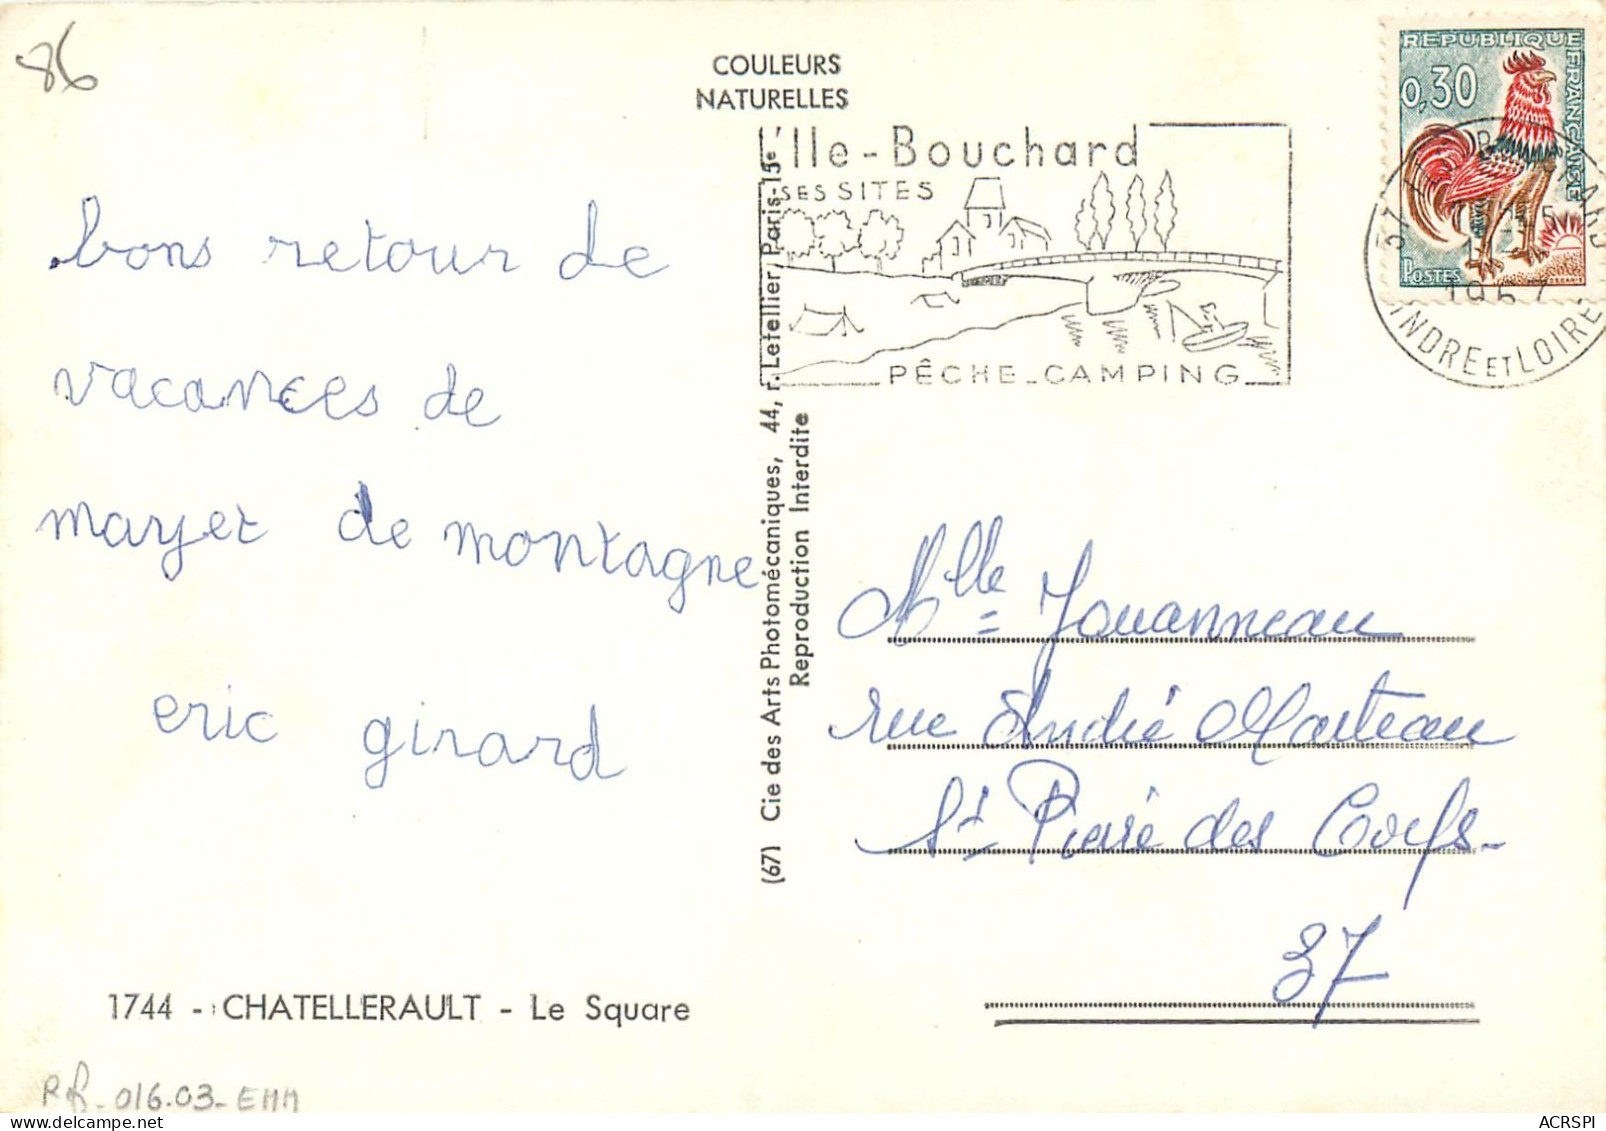 86
COULEURS
NATURELLES
REPUBLIQUE
FRANÇAISE
0,30
POSTES
L'Ile-Bouchard
SES SITES
PÊCHE-CAMPING
37
1967
INDRE ET LOIRE
bons retour de
vacances de
mayet de montagne
eric girard
(67) Cie des Arts Photomécaniques, 44, r. Letellier, Paris-15e
Reproduction Interdite
Mlle Jouanneau
rue André Marteau
St Pierre des Corps-
37
1744 - CHATELLERAULT - Le Square
016.03-EMM
ACRSPI